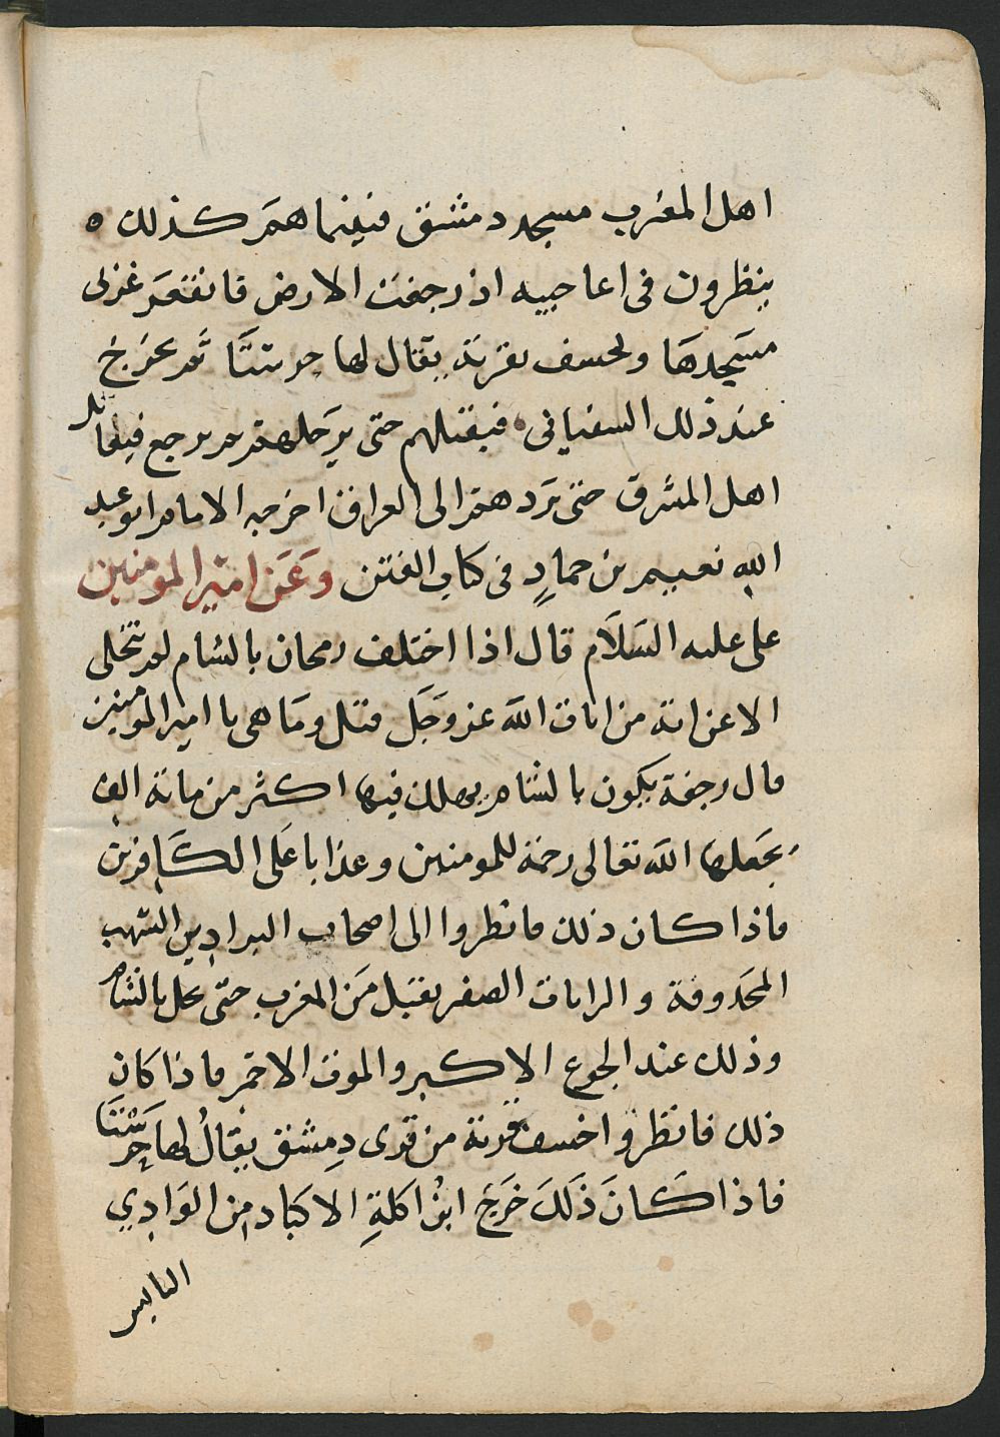 اهل المغرب مسجد دمشق فبينما هم كذلك ه
ينظرون فى اعاجيبه اذ رجفت الارض فانقعر غربى
مسجدها ويخسف بقرية يقال لها حرستا ثم يخرج
عند ذلك السفيانى فيقتلهم حتى يدخلهم مصر ثم يرجع فيقاتل
اهل المشرق حتى يردهم الى العراق اخرجه الامام ابو عبد
الله نعيم بن حمادٍ فى كتاب الفتن وَعَن امير المومنين
على عليه السَلَام قال اذا اختلف رمحان بالشام لم تنجلى
الا عن اية من ايات الله عز وَجَل قيل ومَا هى يا امير المومنين
قال رجفة يكون بالشام يهلك فيها اكثر من مائة الف
يجعلها الله تعالى رحمة للمومنين وعذابا عَلى الكَافرين
فاذا كان ذلك فانظروا الى اصحاب البراذين الشهب
المحذوفة والرايات الصفر يقبل مَن المغرب حتى تحل بالشام
وذلك عند الجوع الاكبر والموت الاحمر فاذا كان
ذلك فانظروا خسف قرية من قرى دمشق يقالُ لها حَرستَا
فاذا كَانَ ذَلَكَ خَرَجَ ابنُ اكلةِ الاكباد من الوَادِي
اليابس